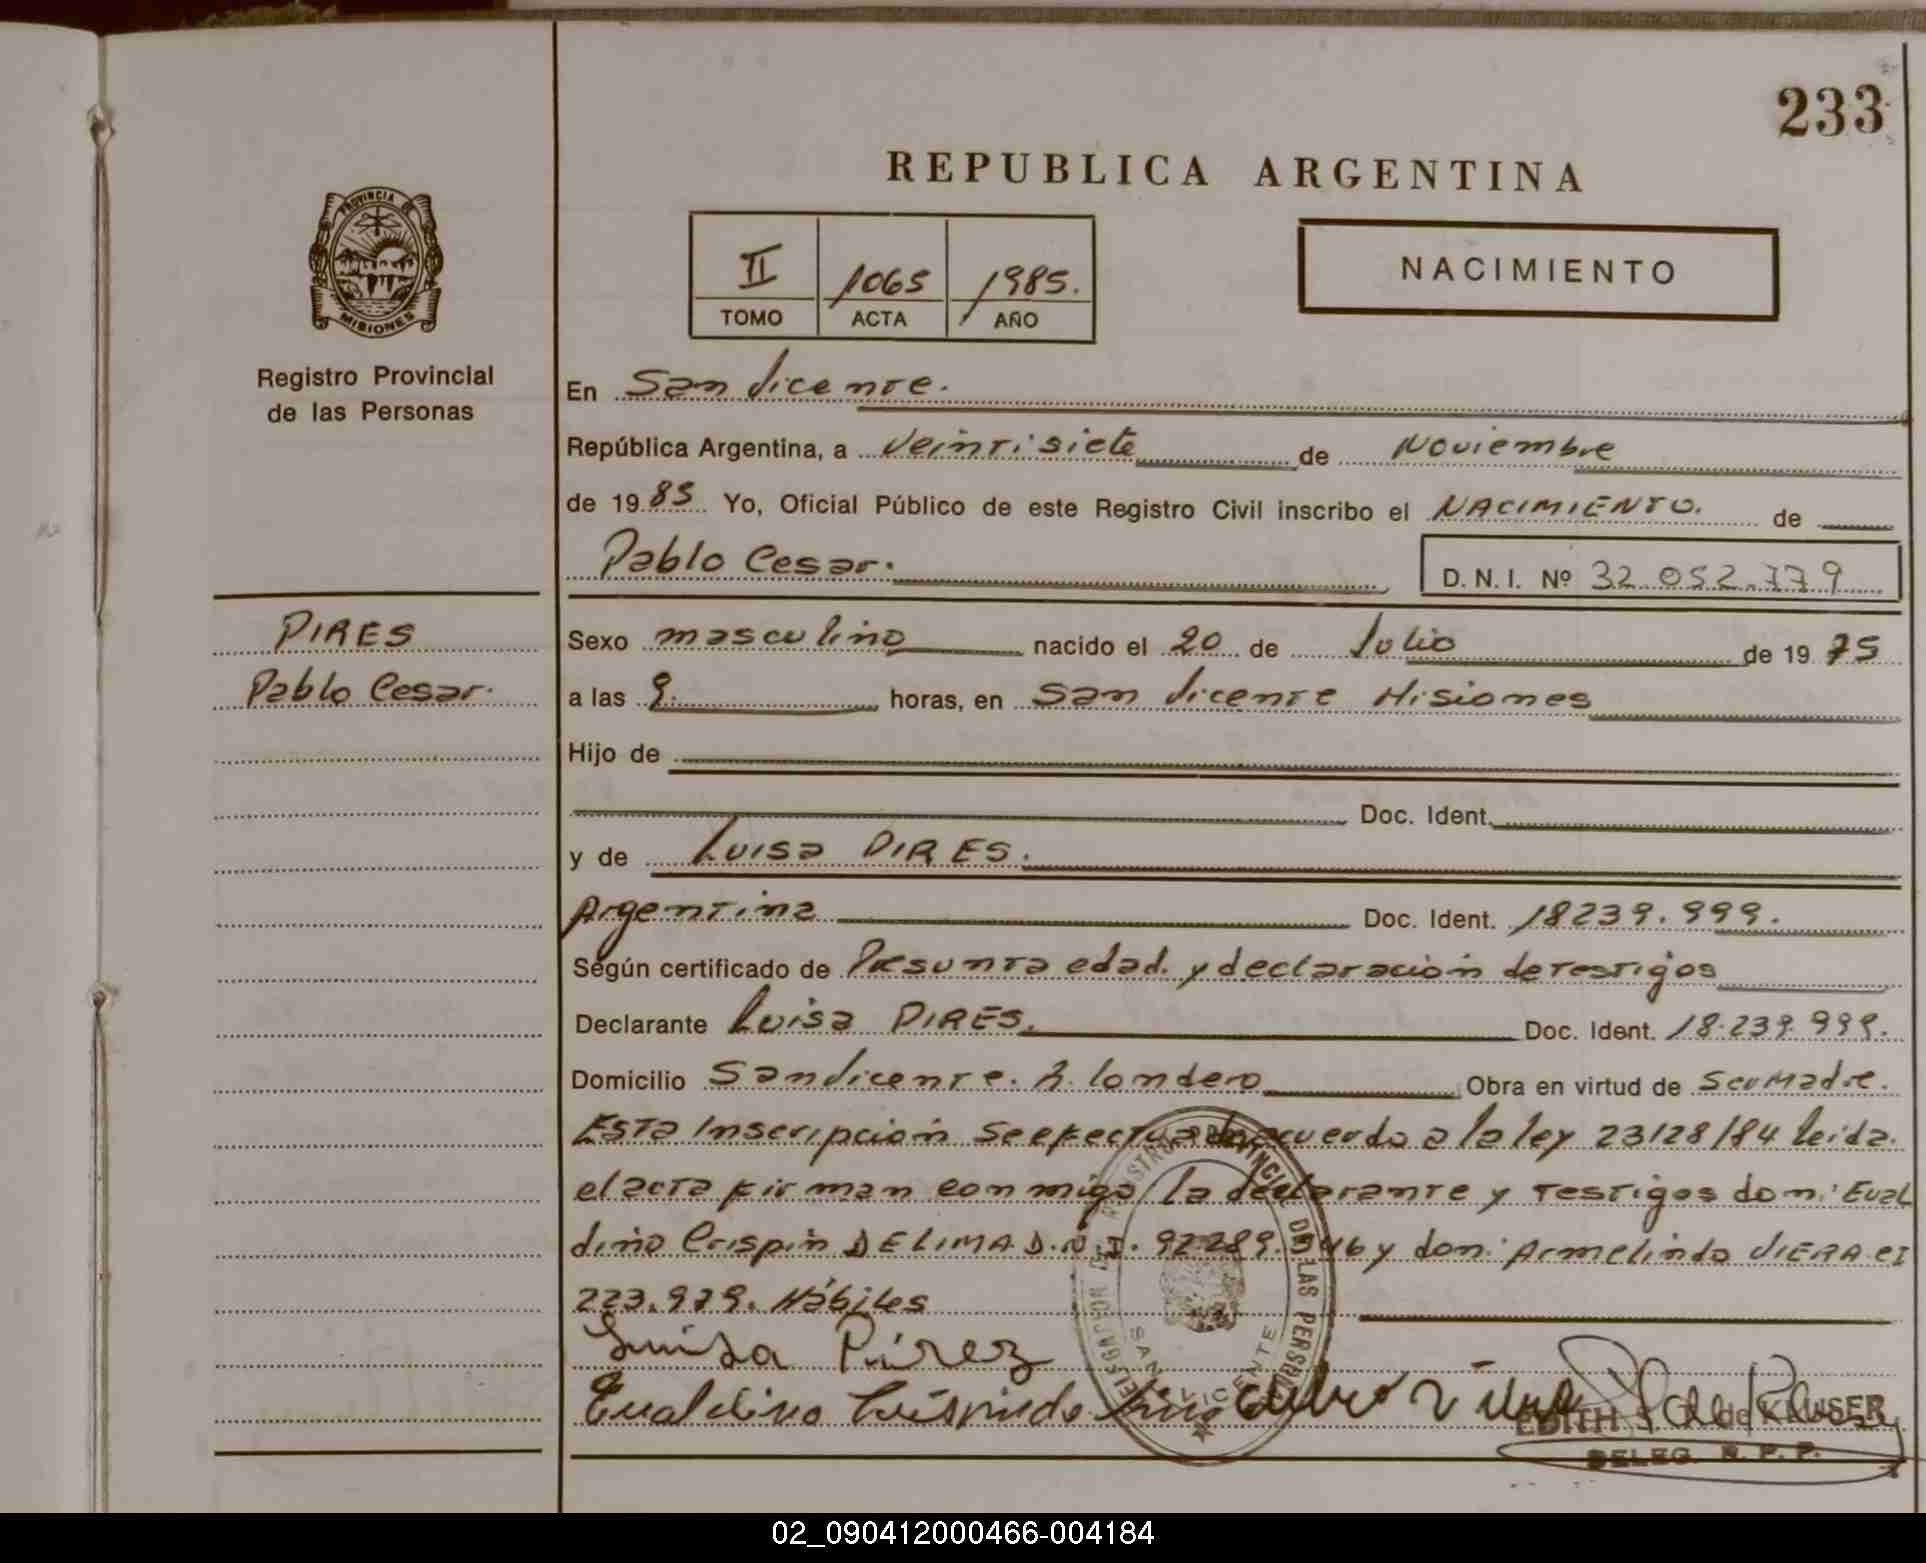 233
REPUBLICA ARGENTINA
PROVINCIA DE
MISIONES
Registro Provincial
de las Personas
II 1065 1985.
TOMO ACTA AÑO
NACIMIENTO
En San Vicente.
República Argentina, a Veintisiete de Noviembre
de 1985 Yo, Oficial Público de este Registro Civil inscribo el NACIMIENTO. de
Pablo Cesar. D. N. I. Nº 32.052.779
PIRES
Pablo Cesar.
Sexo masculino nacido el 20 de Julio de 1975
a las 9. horas, en San Vicente Misiones
Hijo de
Doc. Ident.
y de Luisa PIRES.
Argentina Doc. Ident. 18239.999.
Según certificado de Presunta edad. y declaración de testigos
Declarante Luisa PIRES. Doc. Ident. 18.239.999.
Domicilio San Vicente. Londero Obra en virtud de ser Madre.
Esta Inscripción se efectua de acuerdo a la ley 23128/84 leida.
el acta firman conmigo la declarante y testigos don: Eval
dino Crispin DE LIMA D.N.I. 92.289.346 y don: Armelindo VIERA CI
223.979. Hábiles
Luiza Pírez
Evaldino
DELEGACION REGISTRO PROVINCIAL DE LAS PERSONAS
SAN VICENTE
EDITH de KAUSER
DELEG. R. P. P.
02_090412000466-004184